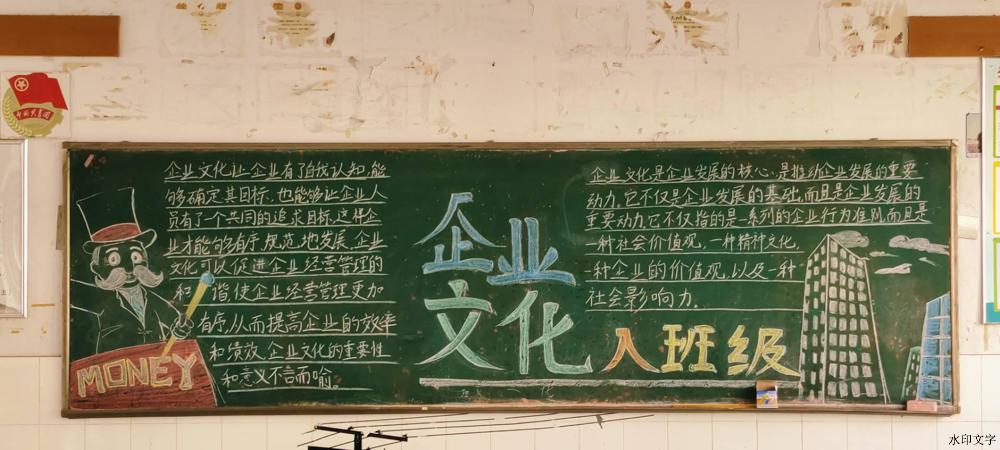 企业文化让企业有了自我认知,能
够确定其目标,也能够让企业人
员有了一个共同的追求目标,这样企
业才能够有序,规范地发展,企业
文化可以促进企业经营管理的
和谐,使企业经营管理更加
有序,从而提高企业的效率
和绩效,企业文化的重要性
和意义不言而喻.
MONEY
企业
文化
入班级
企业文化是企业发展的核心,是推动企业发展的重要
动力,它不仅是企业发展的基础,而且是企业发展的
重要动力,它不仅指的是一系列的企业行为准则,而且是
一种社会价值观,一种精神文化,
一种企业的价值观,以及一种
社会影响力.
水印文字